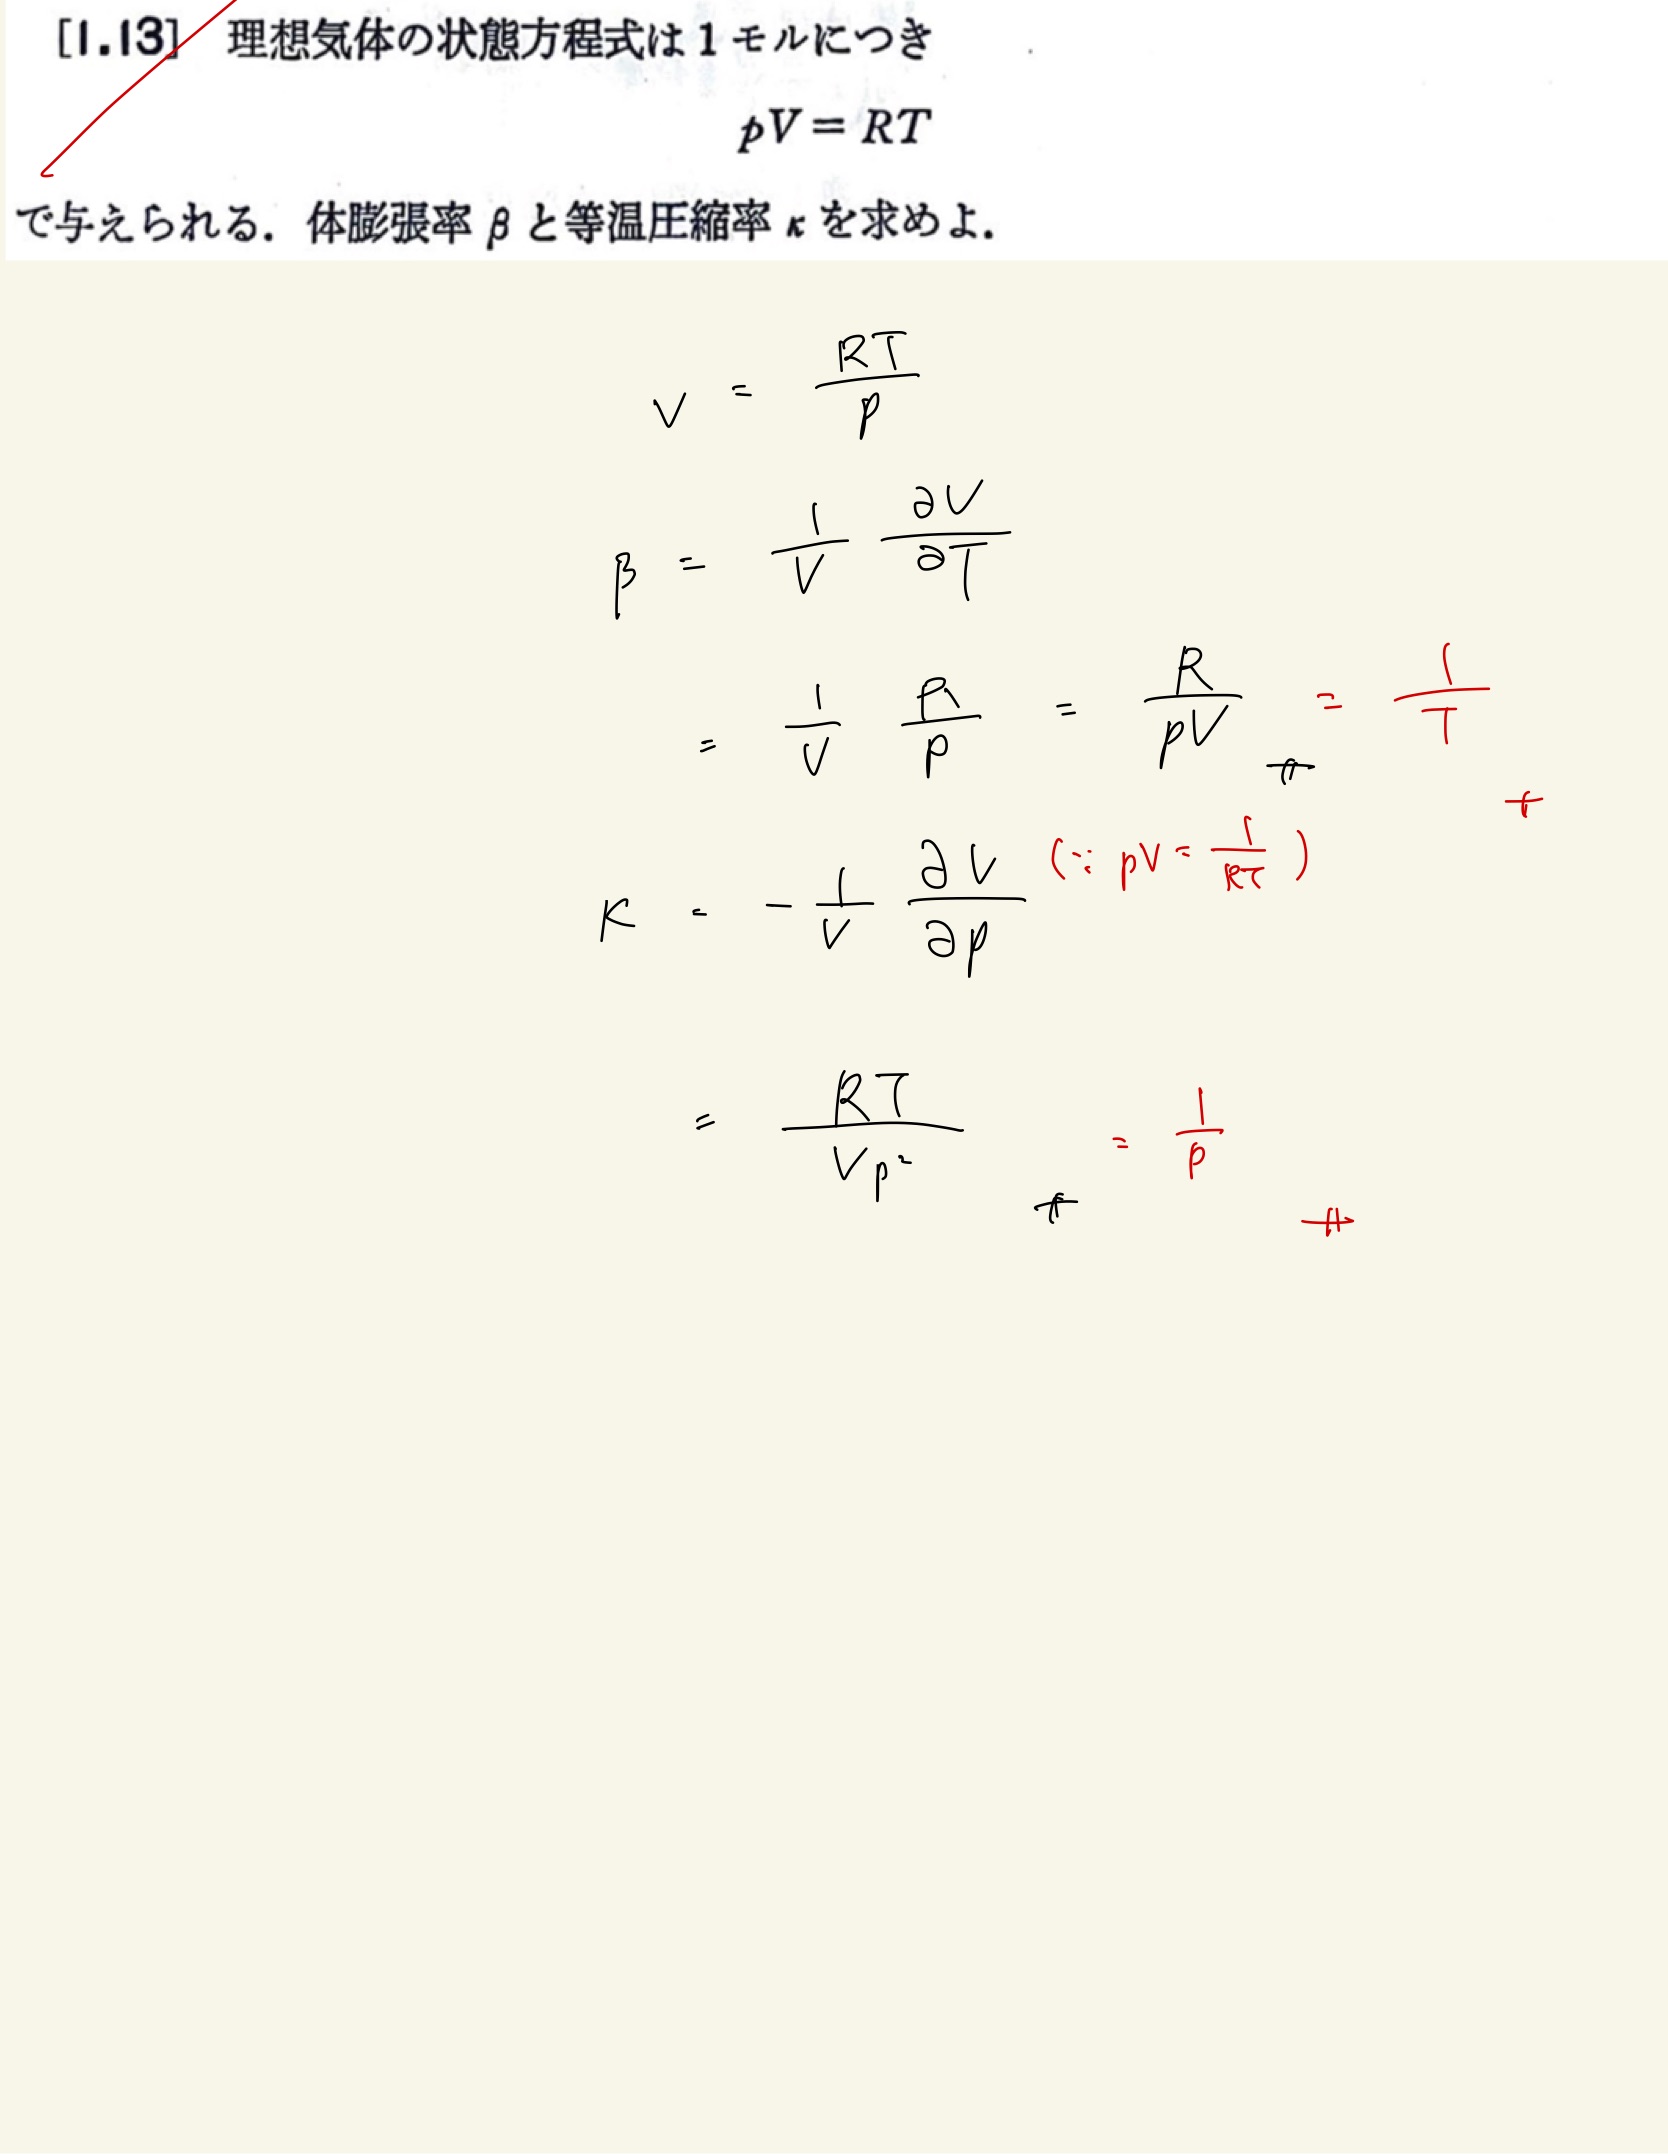 [1.13] 理想気体の状態方程式は1モルにつき
pV = RT
で与えられる. 体膨張率 β と等温圧縮率 κ を求めよ.
V = RT/p
β = 1/V ∂V/∂T
= 1/V R/p = R/pV = 1/T
(∵ pV = 1/RT)
κ = - 1/V ∂V/∂p
= RT/Vp² = 1/p